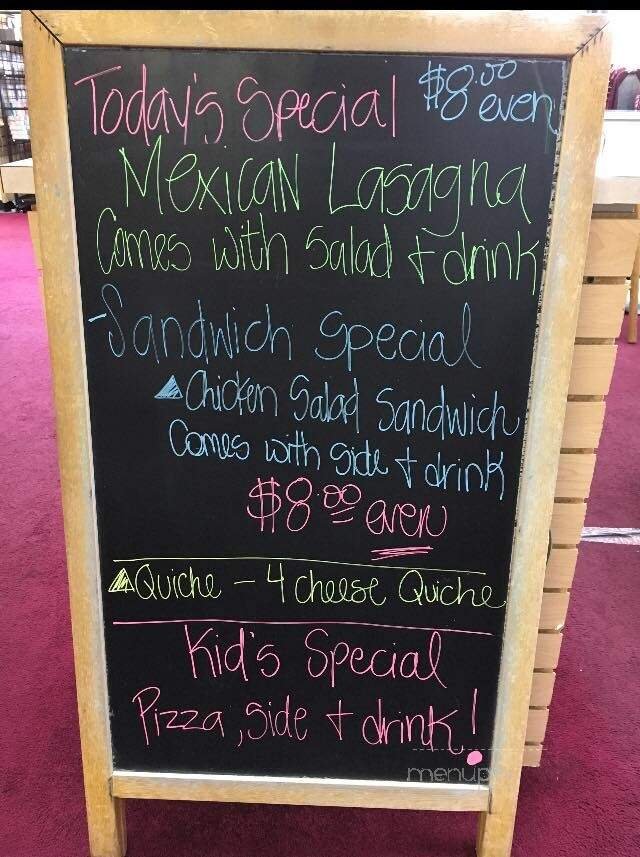 Today's Special $8.00 even
Mexican Lasagna
Comes with Salad + drink
-Sandwich Special
Chicken Salad Sandwich
Comes with side + drink
$8.00 even
Quiche - 4 cheese Quiche
Kid's Special
Pizza, side + drink!
menupix